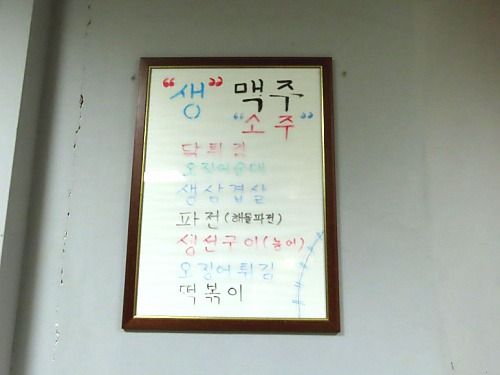 "생" 맥주
"소주"
닭튀김
오징어순대
생삼겹살
파전(해물파전)
생선구이(농어)
오징어튀김
떡볶이